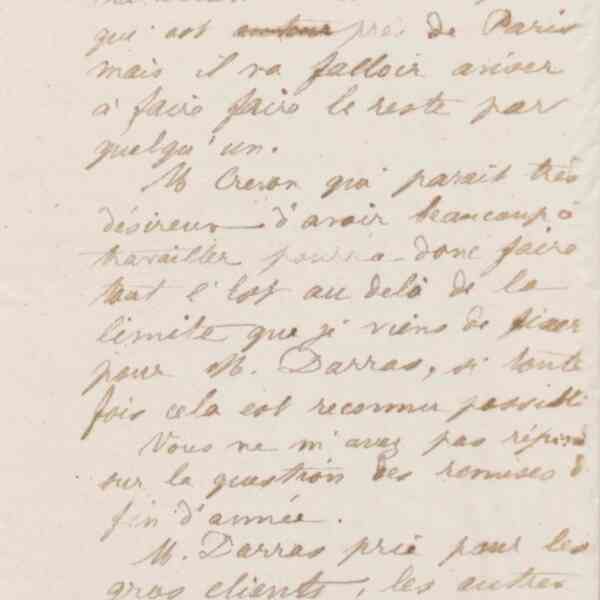 qui est autour près de Paris
mais il va falloir aviser
à faire faire le reste par
quelqu'un.
M Creron qui parait très
désireux d'avoir beaucoup à
travailler pourra donc faire
tout l'Est au delà de la
limite que je viens de fixer
pour M. Darras, si toute
fois cela est reconnu possible
Vous ne m'avez pas répond
sur la question des remises d
fin d'année.
M. Darras prie pour les
gros clients, les autres